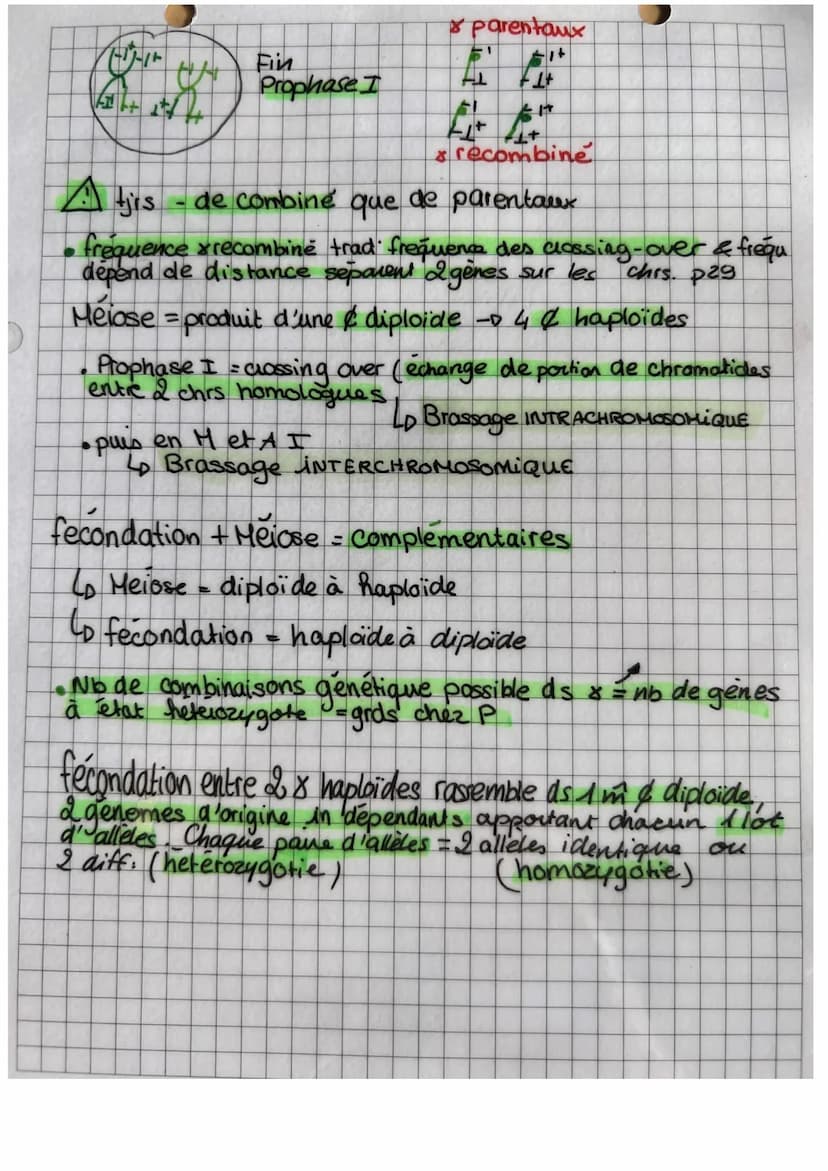 ɣ parentaux
Fin
Prophase I
ɣ recombiné
⚠ tjrs - de combiné que de parentaux
• fréquence ɣ recombiné trad. fréquence des crossing-over & fréqu
dépend de distance séparent 2 gènes sur les chrs. p29
Méiose = produit d'une ¢ diploïde → 4 ¢ haploïdes
• Prophase I = crossing over (échange de portion de chromatides
entre 2 chrs homologues
↳ Brassage INTRACHROMOSOMIQUE
• puis en M et A I
↳ Brassage INTERCHROMOSOMIQUE
fécondation + Méiose = complémentaires
↳ Meïose = diploïde à haploïde
↳ fécondation = haploïde à diploïde
• Nb de combinaisons génétique possible ds ɣ = nb de gènes
à état heterozygote = grds chez P
fécondation entre 2 ɣ haploïdes rassemble ds 1 m̂ ¢ diploïde,
2 génomes d'origine indépendants apportant chacun 1 lot
d'allèles. Chaque paire d'allèles = 2 allèles identique ou
2 diff. (hétérozygotie) (homozygotie)